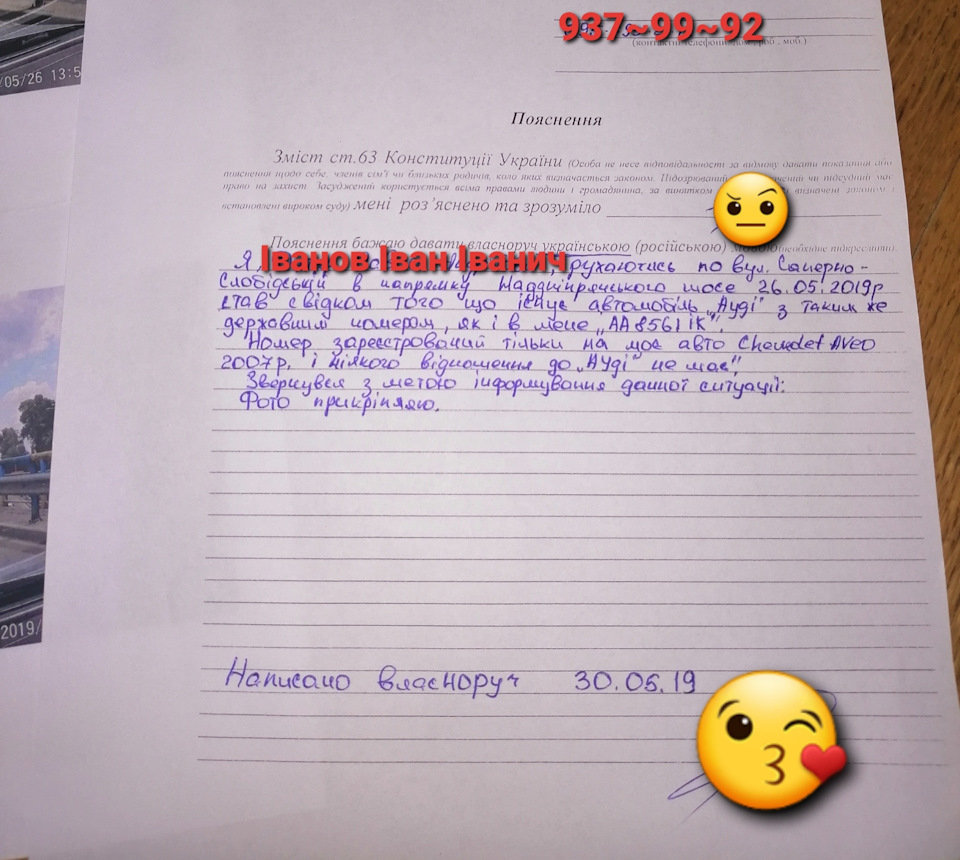 937~99~92
(контактні телефони дом., роб., моб.)
/05/26 13:5
Пояснення
Зміст ст.63 Конституції України (Особа не несе відповідальності за відмову давати показання або
пояснення щодо себе, членів сім'ї чи близьких родичів, коло яких визначається законом. Підозрюваний чи підсудний має
право на захист. Засуджений користується всіма правами людини і громадянина, за винятком визначені законом і
встановлені вироком суду) мені роз'яснено та зрозуміло
Пояснення бажаю давати власноруч українською (російською) мовою (необхідне підкреслити)
Я, Іванов Іван Іванич, рухаючись по вул. Саперно-
Слобідській в напрямку Наддніпрянського шосе 26.05.2019р
став свідком того що існує автомобіль "Ауді" з таким же
державним номером, як і в мене "АА 8561 ІК".
Номер зареєстрований тільки на моє авто Chevrolet AVEO
2007р. і ніякого відношення до "Ауді" не має".
Звернувся з метою інформування данної ситуації.
Фото прикріпляю.
2019/
Написано власноруч 30.05.19